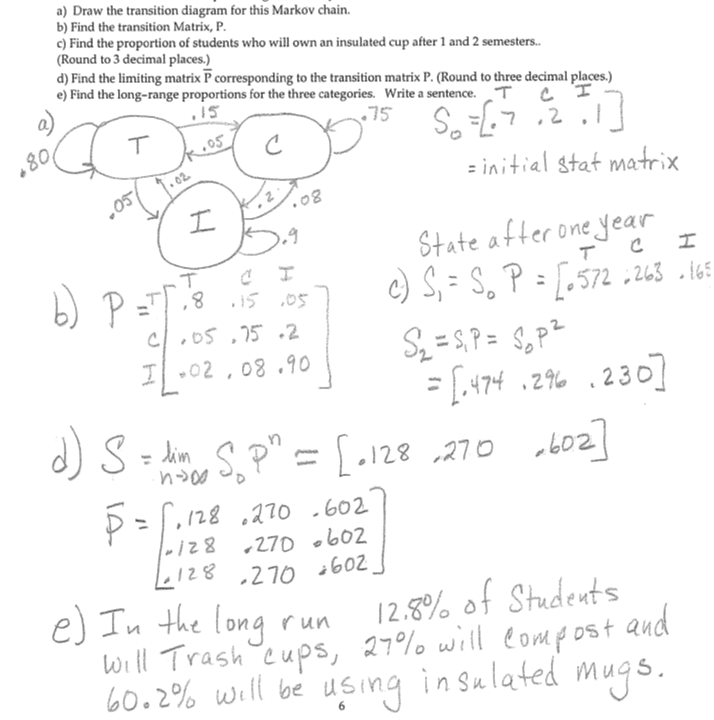 a) Draw the transition diagram for this Markov chain.
b) Find the transition Matrix, P.
c) Find the proportion of students who will own an insulated cup after 1 and 2 semesters..
(Round to 3 decimal places.)
d) Find the limiting matrix P̅ corresponding to the transition matrix P. (Round to three decimal places.)
e) Find the long-range proportions for the three categories. Write a sentence.
a)
.80 T .15 .05 C .75
.05 .02 .2 .08
I .9
T C I
S₀ = [.7 .2 .1]
= initial stat matrix
State after one year
T C I
c) S₁ = S₀ P = [.572 .263 .165
S₂ = S₁P = S₀P²
= [.474 .296 .230]
T C I
b) P = T [.8 .15 .05
C .05 .75 .2
I .02 .08 .90]
d) S = lim n→∞ S₀Pⁿ = [.128 .270 .602]
P̅ = [.128 .270 .602
.128 .270 .602
.128 .270 .602]
e) In the long run 12.8% of Students
will Trash cups, 27% will compost and
60.2% will be using insulated mugs.
6